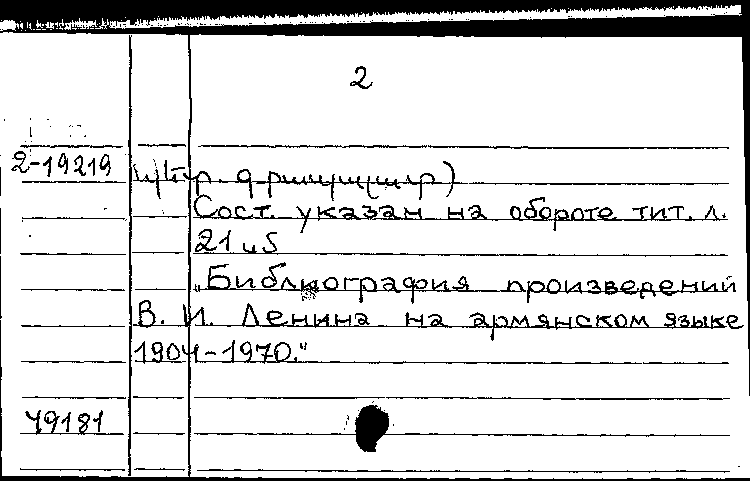 2
2-19219 պետր. գրապալար)
Сост. указан на обороте тит. л.
21 սմ
„Библиография произведений
В. И. Ленина на армянском языке
1904-1970."
49181